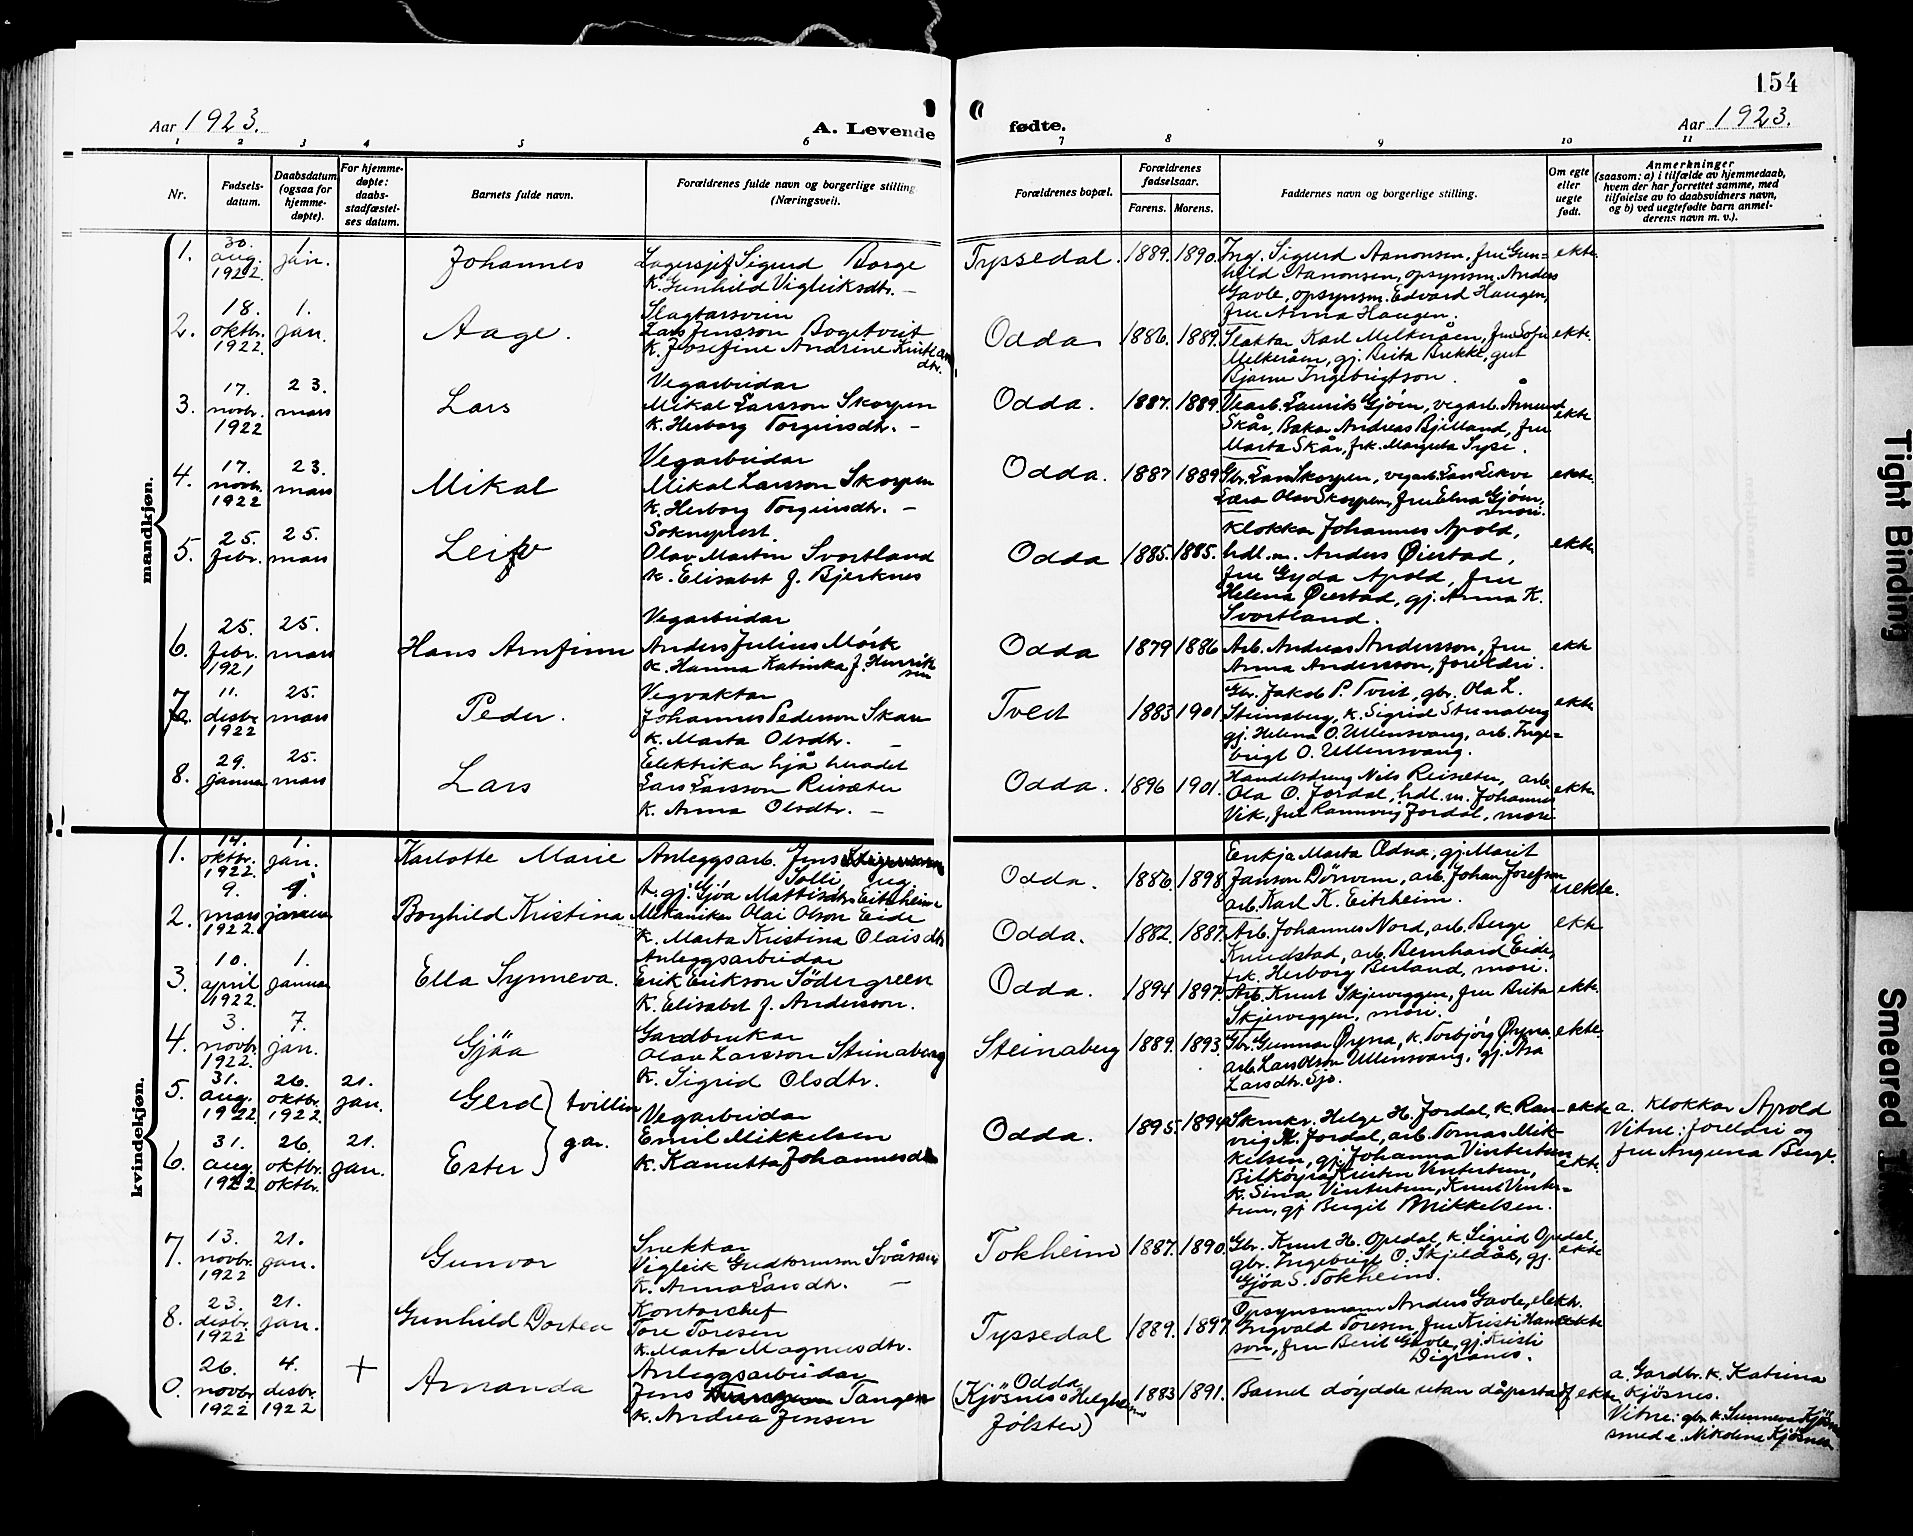 154
Aar 1923.
A. Levende
fødte.
Aar 1923.
1 2 3 4 5 6 7 8 9 10 11
Nr.
Fødsels-
datum.
Daabsdatum
(ogsaa for
hjemme-
døpte).
For hjemme-
døpte:
daabs-
stadfæstel-
ses datum.
Barnets fulde navn.
Forældrenes fulde navn og borgerlige stilling
(Næringsvei).
Forældrenes bopæl.
Forældrenes
fødselsaar.
Farens. Morens.
Faddernes navn og borgerlige stilling.
Om egte
eller
uegte
født.
Anmerkninger
(saasom: a) i tilfælde av hjemmedaab,
hvem der har forrettet samme, med
tilføielse av to daabsvidners navn,
og b) ved uegtefødte barn anmel-
derens navn m. v.).
mandkjøn.
1.
30.
aug.
1922
1.
jan.
Johannes
Lagersjef Sigurd Borge
k. Gunhild Vigleiksdtr. –
Tyssedal. 1889. 1890.
Ing. Sigurd Aanonsen, fru Gun-
hild Aanonsen, opsynsm. Anders
Gavle, opsynsm. Edvard Haugen,
fru Anna Haugen.
ekte.
2.
18.
oktbr.
1922.
1.
jan.
Aage.
Slagtarsvein
Lars Jensson Bogetveit
k. Josefine Andrine
dtr.
Odda 1886. 1889.
Slaktar Karl Melkeråen, fru Sofie
Melkeråen, gj. Brita Brekke, gut
Bjarne Ingebrigtson.
ekte.
3.
17.
novbr.
1922
23.
mars
Lars
Vegarbeidar
Mikal Larsson Skorpen
k. Herborg Torgeirsdtr. –
Odda. 1887. 1889.
Vearb. Laurits Gjøen, vegarb. Åmund
Skår, Bakar Andreas Bjelland, fru
Marta Skår, frk. Margreta Syse.
ekte
4.
17.
novbr.
1922
23.
mars
Mikal
Vegarbeidar
Mikal Larsson Skorpen
k. Herborg Torgeirsdtr. –
Odda. 1887 1889
Gbr. Lars Skorpen, vegarb. Lars Lekve
Olav Skorpen, fru Elna Gjøen,
mori.
ekte.
5.
25.
febr.
25.
mars
Leiv
Sokneprest.
Olav Martin Svortland
k. Elisabet f. Bjerknes
Odda 1885. 1885.
Klokkar Johannes Apold,
hdl.m. Anders Øiestad,
fru Gyda Apold, fru
Helena Øiestad, gj. Anna K.
Svortland.
ekte
6.
25.
febr.
1921
25.
mars
Hans Arnfinn
Vegarbeidar
Anders Julius Mørk
k. Hanna Katinka f. Henrik
sen
Odda 1879 1886
Arb. Andreas Andersson, fru
Anna Andersson, foreldri.
ekte
7.
11.
desbr.
1922
25.
mars
Peder.
Vegvaktar
Johannes Pederson Skare
k. Marta Olsdtr. –
Tveit 1883 1901
Gbr. Jakob P. Tveit, gbr. Ola L.
Steinaberg, k. Sigrid Steinaberg
gj. Helena O. Ullensvang, arb. Inge-
brigt O. Ullensvang.
ekte
8.
29.
januar
25.
mars
Lars
Elektrikar hjå heradet
Lars Larsson Reisæter
k. Anna Olsdtr. –
Odda. 1896 1901.
Handelsdreng Nils Reisæter, arb.
Ola O. Jordal, hdl.m. Johannes
Vik, fru Rannveig Jordal, mori
ekte.
kvindekjøn.
1.
14.
oktbr.
1922
1.
jan.
Karlotte Marie
Anleggsarb. Jens
Solli ug.
t. gj. Gjøa Mattisdtr. Eitrheim
Odda. 1886. 1898.
Enkja Marta Odna, gj. Marit
Janson, arb. Johan Josefson
arb. Karl K. Eitrheim.
uekte.
2.
9.
mars
1922.
1.
januar
Borghild Kristina
Mekaniker Olai Olson Eide
k. Marta Kristina Olaisdtr
Odda. 1882. 1887.
Arb. Johannes Nord, arb. Berge
Knudstad, arb. Bernhard Eide,
frk. Herborg Berland, mori.
ekte
3.
10.
april
1922.
1.
januar
Ella Synneva.
Anleggsarbeidar
Erik Erikson Södergreen
k. Elisabet f. Andersson.
Odda. 1894 1897.
Arb. Knut Skjerveggen, fru Brita
Skjerveggen, mori.
ekte.
4.
3.
novbr.
1922.
7.
jan.
Gjöa
Gardbrukar
Olav Larsson Steinaberg
k. Sigrid Olsdtr.
Steinaberg 1889. 1893.
Gbr. Gunnar Øyna, k. Torbjörg Øyna
arb. Lars Olson Ullensvang, gj. Åsa
Larsdtr. Sjo.
ekte.
5.
31.
aug.
1922
26.
oktbr.
1922
21.
jan.
Gerd
tvillin
gar.
Vegarbeidar
Emil Mikkelsen
k. Kanutta Johannesdtr
6.
31.
aug.
1922
26.
oktbr.
oktbr.
21.
jan.
Ester
Odda. 1895. 1894
Helge H. Jordal, k. Ran-
veig H. Jordal, arb. Tomas Mik-
kelsen, gj. Johanna Vintertun
Bilkøyrar Kristen Vintertun,
k. Sina Vintertun, Knut Vinter-
tun, gj Bergit Mikkelsen.
ekte
ekte.
a. Klokkar Apold
Vitne: foreldri og
fru Angunna Berge.
7.
13.
novbr.
1922
21.
jan.
Gunvor
Snekkar
Vigleik Gudtormson Svåsand
k. Anna Larsdtr. –
Tokheim 1887. 1890.
Gbr. Knut H. Opedal, k. Sigrid Opedal,
gbr. Ingebrigt O. Skjeldås, gj.
Gjøa S. Tokheim.
ekte
8.
23.
desbr.
1922
21.
jan.
Gunhild Dortea
Kontorchef
Tore Toresen
k. Marta Magnusdtr.
Tyssedal 1889. 1897
Opsynsmann Anders Gavle, elektr.
Ingvald Toresen, fru Kristi Han-
son, fru Berit Gavle, gj. Kristi
Digranes.
ekte
0.
26.
novbr.
1922
4.
desbr.
1922
+
Amanda
Anleggsarbeidar
Jens Tangen
k. Andrea Jensen
Odda
(Kjøsnes Helgheim
Jølster)
1883 1891.
Barnet döydde utan dåpstadf.
ekte
a. Gardbr. k. Katrina
Kjøsnes.
Vitne: gbr. k. Sunneva Kjøsnes
smed e. Nikolina Kjøsnes
Tight Binding
Smeared